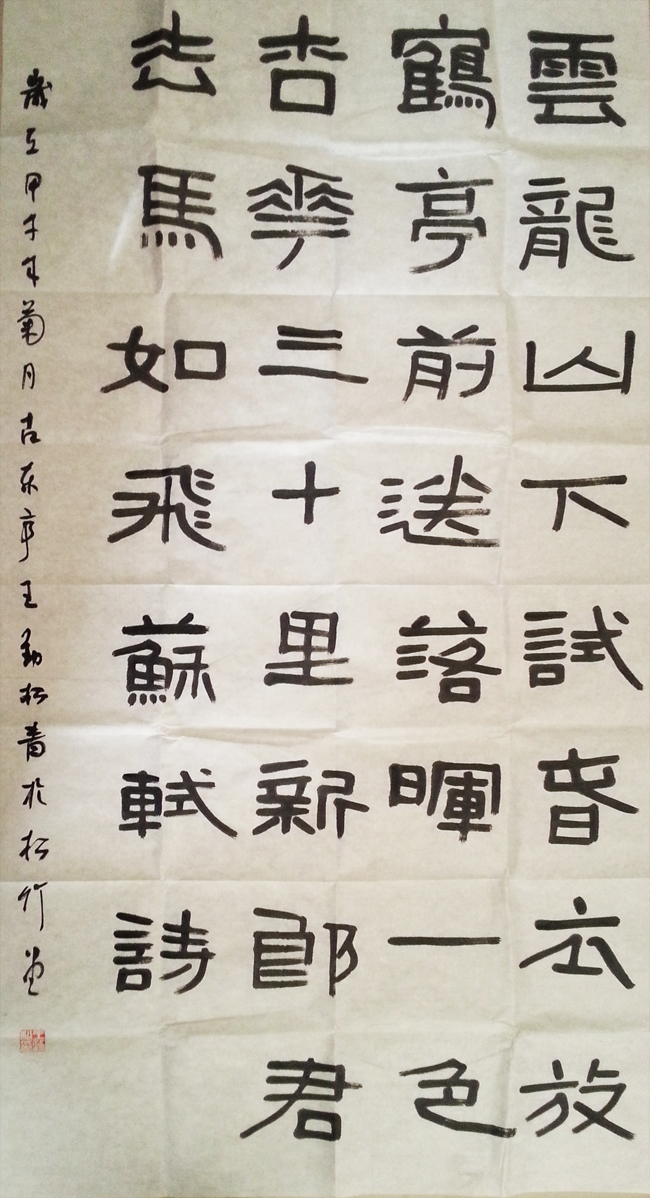 雲龍山下試春衣放
鶴亭前送落暉一色
杏華三十里新郎君
去馬如飛蘇軾詩
歲在甲午年菊月古東亭王勁松書於松竹堂